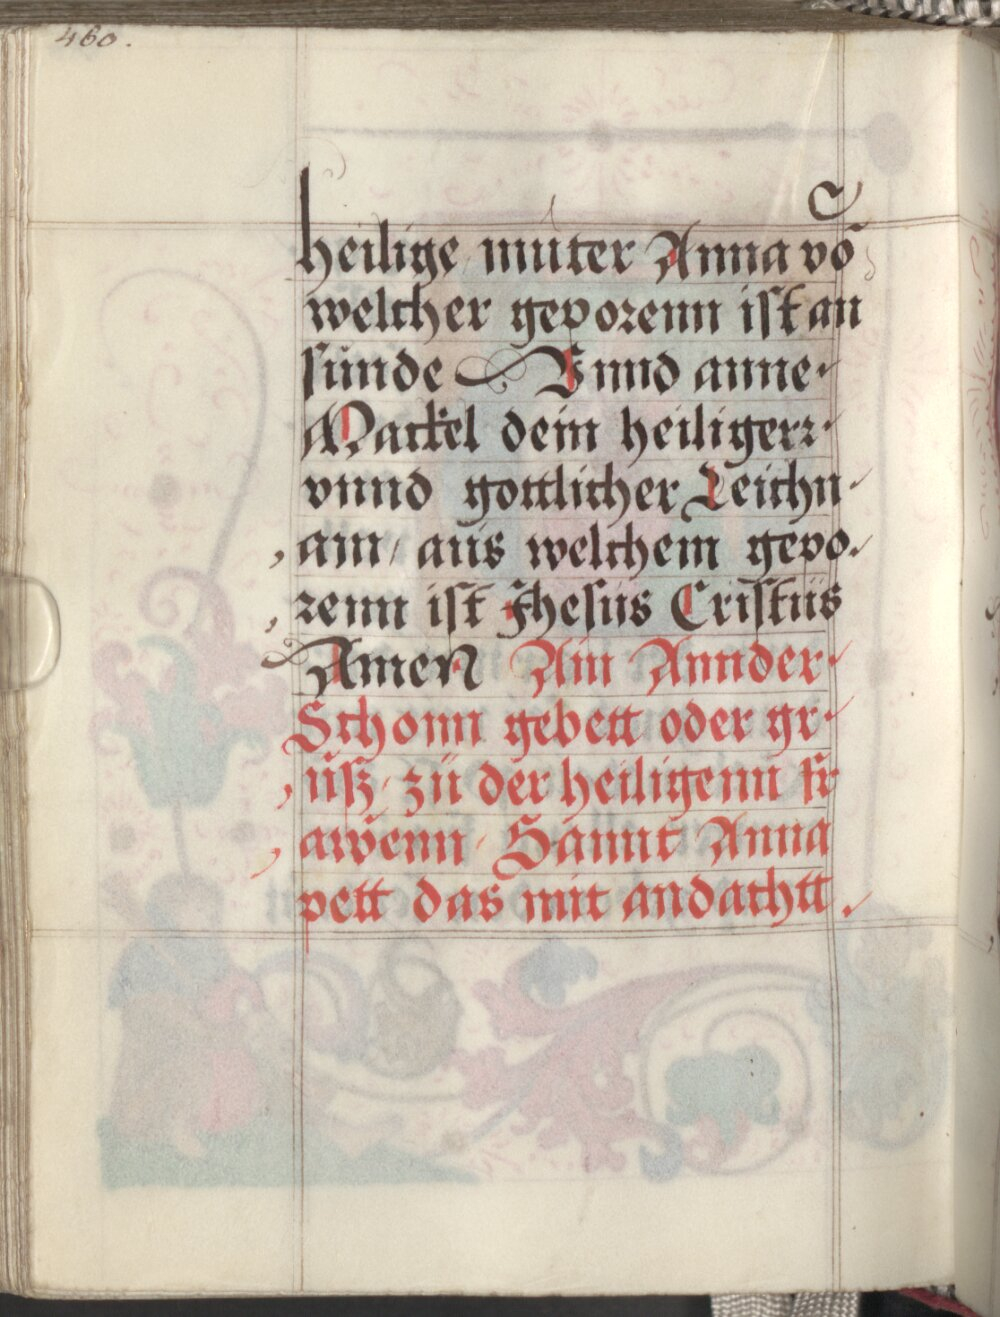 460.
heilige muter Anna vō
welcher geporenn ist an
sünde Vnnd anne
Mackel dein heiligerr
vnnd gottlicher Leichn
am/ aus welchem gepo
renn ist Jhesus Cristus
Amen Ain Annder
Schonn gebett oder gr
uß/ zü der heiligenn fr
awenn Sannt Anna
pett das mit andachtt.